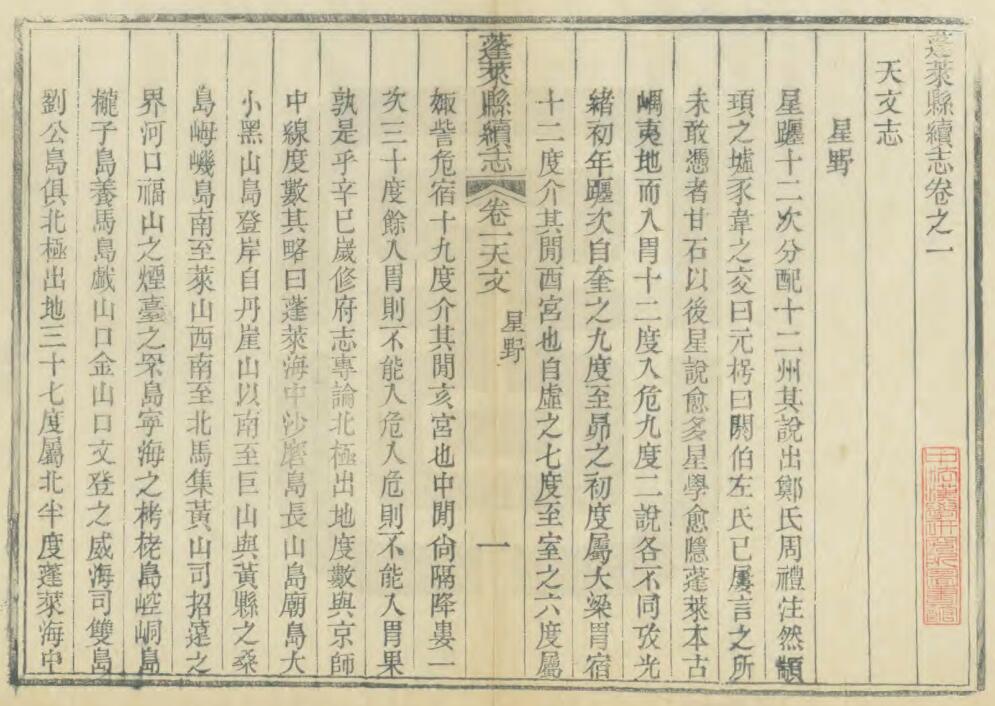 蓬萊縣續志卷之一
天文志
星野
星躔十二次分配十二州其說出鄭氏周禮注然顓
頊之墟豕韋之交曰元枵曰閼伯左氏已屢言之所
未敢憑者甘石以後星說愈多星學愈隱蓬萊本古
嵎夷地而入胃十二度入危九度二說各不同攷光
緒初年躔次自奎之九度至昴之初度屬大梁胃宿
十二度介其閒酉宮也自虛之七度至室之六度屬
蓬萊縣續志
卷一天文
星野
一
娵訾危宿十九度介其閒亥宮也中閒尙隔降婁一
次三十度餘入胃則不能入危入危則不能入胃果
孰是乎辛巳歲修府志專論北極出地度數與京師
中線度數其略曰蓬萊海中沙磨島長山島廟島大
小黑山島登岸自丹崖山以南至巨山與黃縣之桑
島㟂嶬島南至萊山西南至北馬集黃山司招遠之
界河口福山之煙臺之罘島寧海之栲栳島崆峒島
櫳子島養馬島戲山口金山口文登之威海司雙島
劉公島俱北極出地三十七度屬北半度蓬萊海中